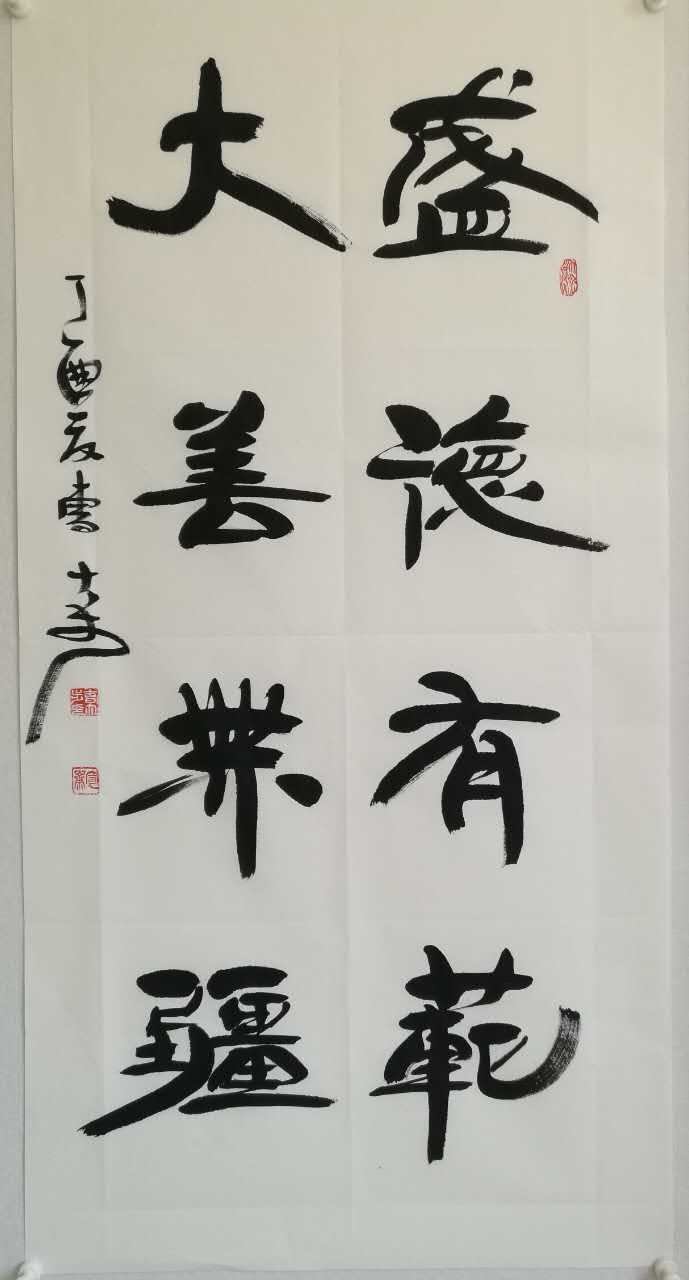 盛德有範
大善無疆
丁酉夏書